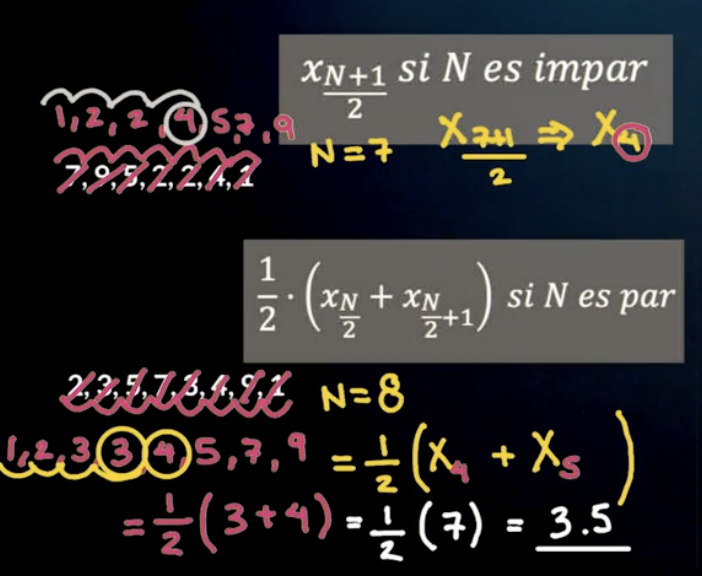 x_{\frac{N+1}{2}} si N es impar
1, 2, 2, 4, 5, 7, 9
N = 7 x_{\frac{7+1}{2}} ⇒ x_4
7, 9, 5, 2, 2, 4, 1
\frac{1}{2} · (x_{\frac{N}{2}} + x_{\frac{N}{2}+1}) si N es par
2, 3, 5, 7, 3, 4, 9, 1
N = 8
1, 2, 3, 3, 4, 5, 7, 9
= \frac{1}{2} (x_4 + x_5)
= \frac{1}{2} (3 + 4) = \frac{1}{2} (7) = 3.5